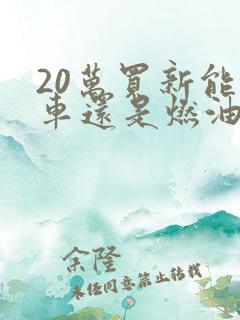 20萬買新能
車還是燃油
余隆
未任同意禁止转载